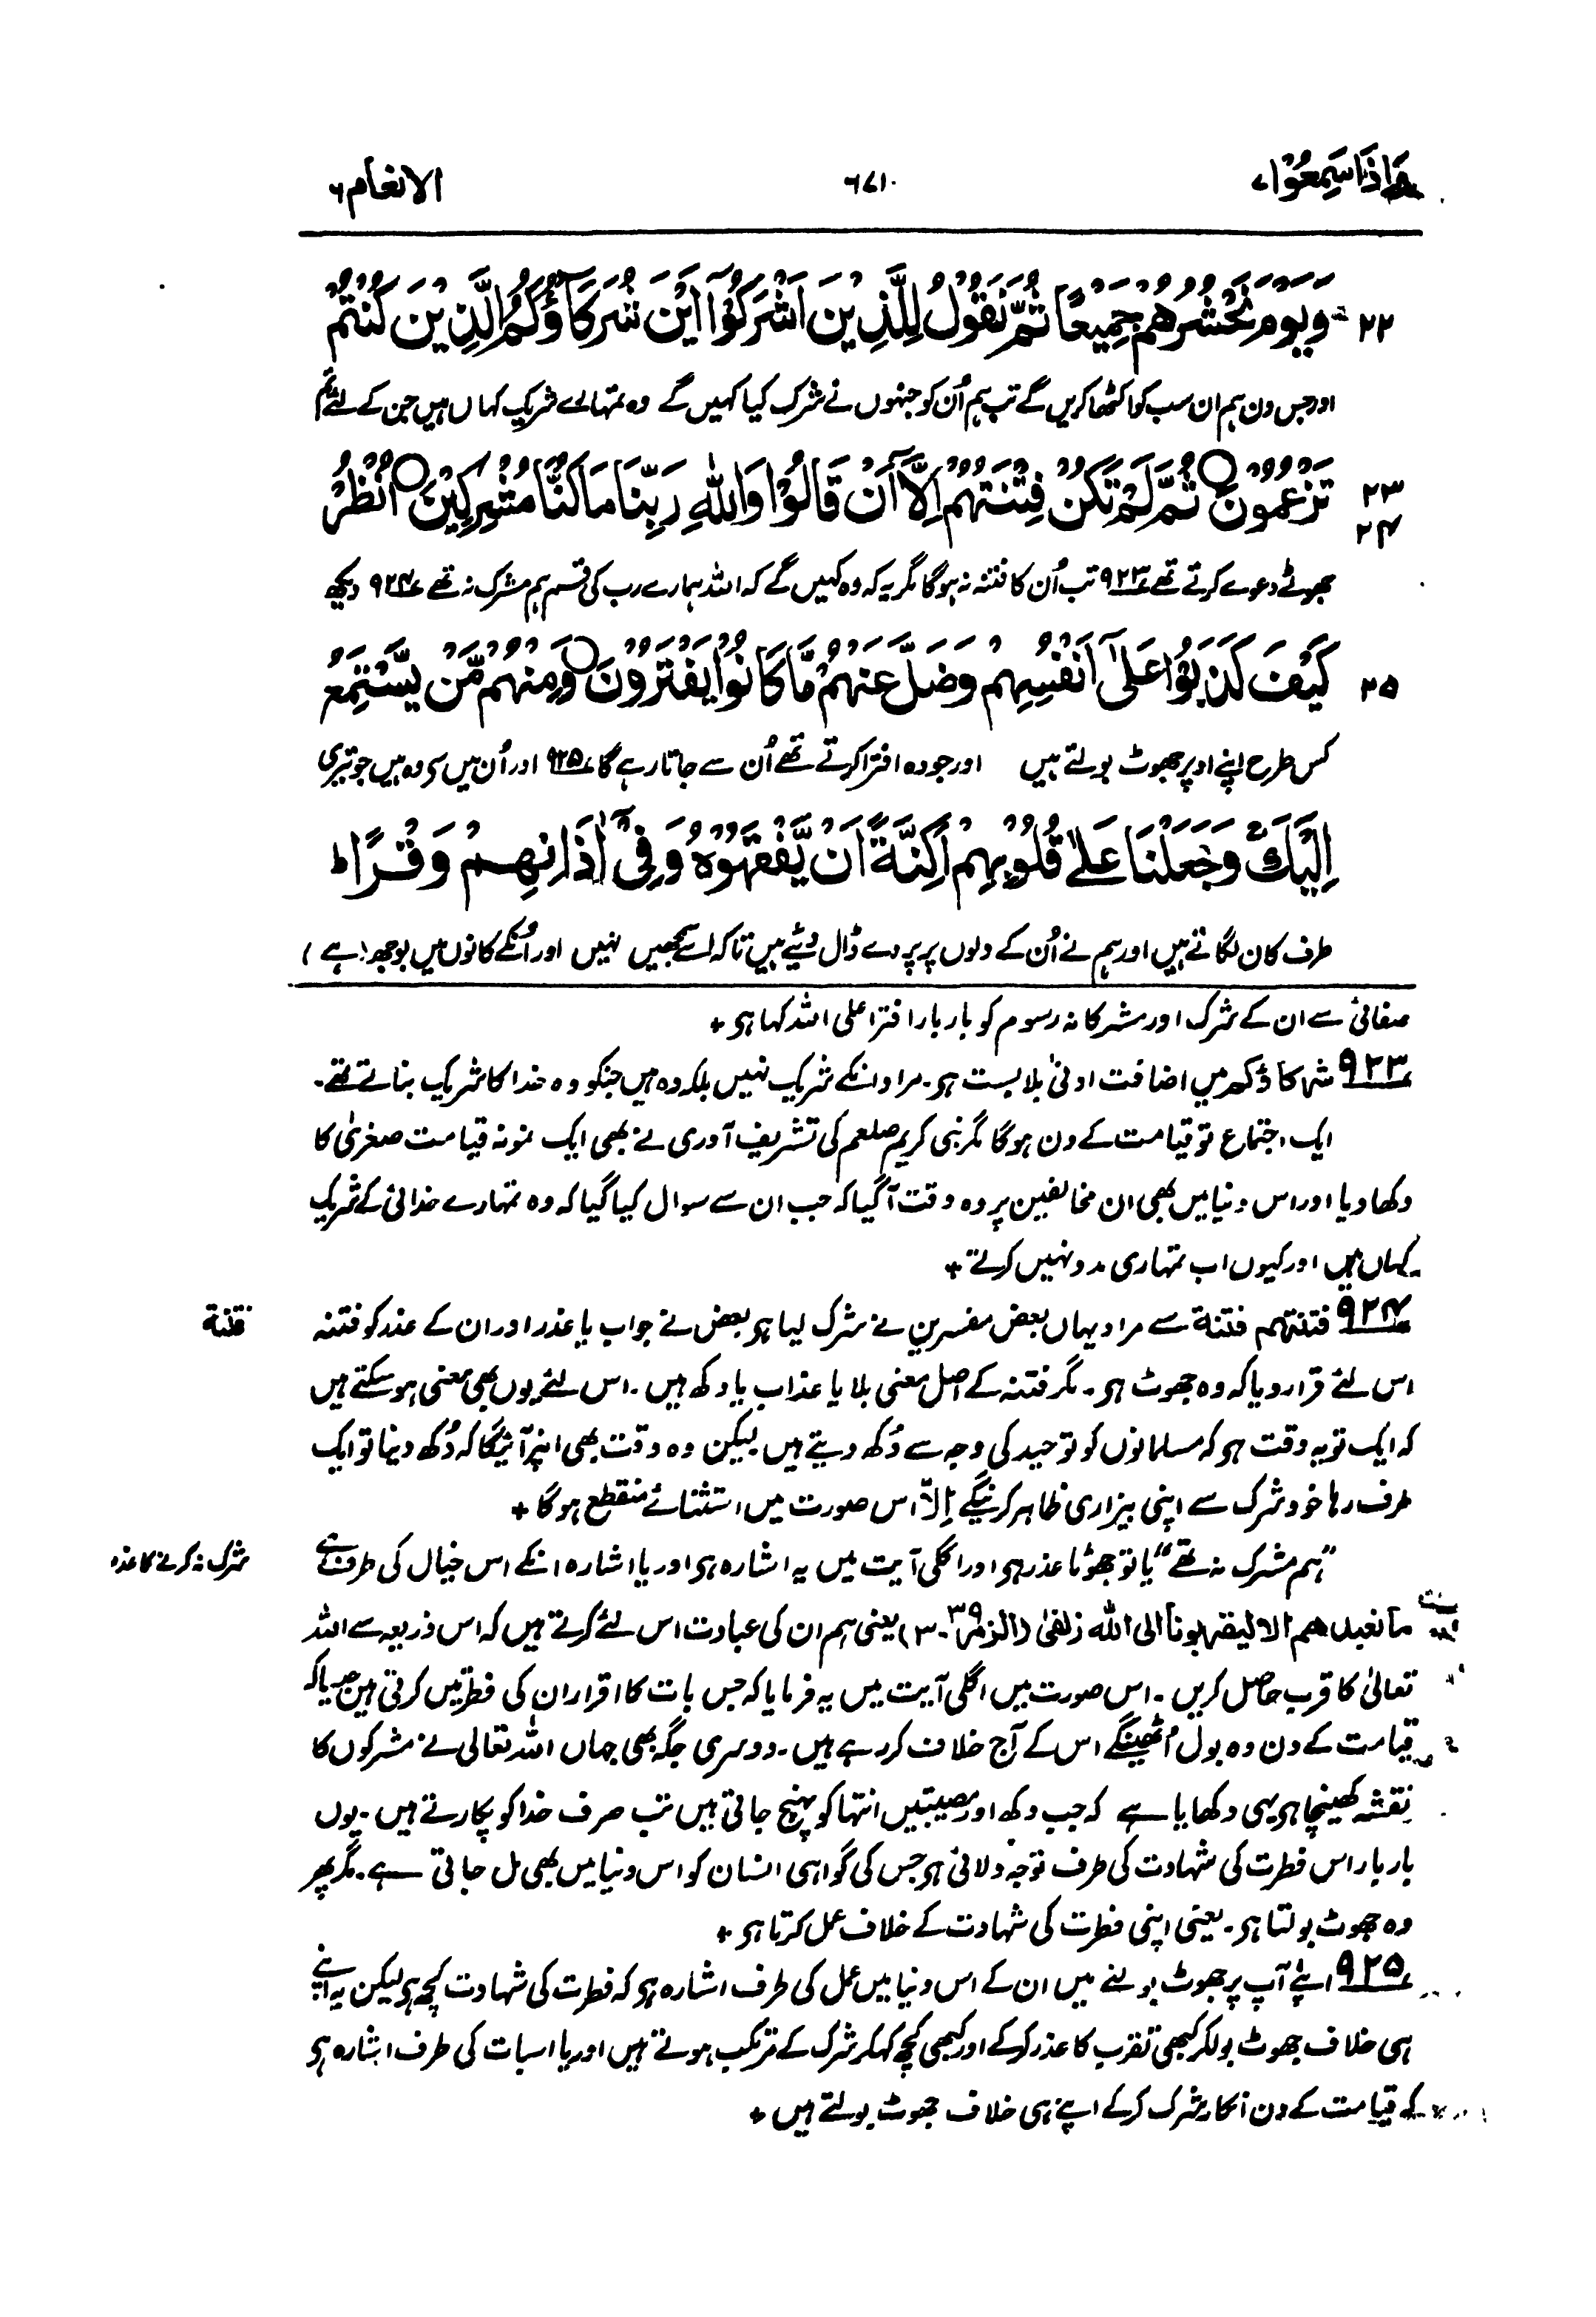 واذا سمعوا ۷ ۶۷۱ الانعام ۶
۲۲ وَيَوْمَ نَحْشُرُهُمْ جَمِيْعًا ثُمَّ نَقُوْلُ لِلَّذِيْنَ اَشْرَكُوْٓا اَيْنَ شُرَكَآؤُكُمُ الَّذِيْنَ كُنْتُمْ
اور جس دن ہم ان سب کو اکٹھا کریں گے تب ہم اُن کو جنہوں نے شرک کیا کہیں گے وہ تمہارے شریک کہاں ہیں جن کے لئے تم
۲۳ ۲۴ تَزْعُمُوْنَ ○ ثُمَّ لَمْ تَكُنْ فِتْنَتُهُمْ اِلَّآ اَنْ قَالُوْا وَاللّٰهِ رَبِّنَا مَا كُنَّا مُشْرِكِيْنَ ○ اُنْظُرْ
جھوٹے دعوے کرتے تھے ۹۲۳ تب اُن کا فتنہ نہ ہوگا مگر یہ کہ وہ کہیں گے کہ اللہ ہمارے رب کی قسم ہم مشرک نہ تھے ۹۲۴ دیکھ
۲۵ كَيْفَ كَذَبُوْا عَلٰٓى اَنْفُسِهِمْ وَضَلَّ عَنْهُمْ مَّا كَانُوْا يَفْتَرُوْنَ ○ وَمِنْهُمْ مَّنْ يَّسْتَمِعُ
کس طرح اپنے اوپر جھوٹ بولتے ہیں اور جو وہ افترا کرتے تھے اُن سے جاتا رہے گا ۹۲۵ اور اُن میں سے وہ ہیں جو تیری
اِلَيْكَ وَجَعَلْنَا عَلٰى قُلُوْبِهِمْ اَكِنَّةً اَنْ يَّفْقَهُوْهُ وَفِيْٓ اٰذَانِهِمْ وَقْرًا ط
طرف کان لگاتے ہیں اور ہم نے اُن کے دلوں پر پردے ڈال دیئے ہیں تاکہ اسے سمجھیں نہیں اور اُنکے کانوں میں بوجھ (ہے)
صفائی سے ان کے شرک اور مشرکانہ رسوم کو بار بار افترا علی اللہ کہا ہی +
۹۲۳ شرکاؤکم میں اضافت ادنیٰ ملابست ہی۔ مراد انکے شریک نہیں بلکہ وہ ہیں جنکو وہ خدا کا شریک بناتے تھے۔
ایک اجتماع تو قیامت کے دن ہوگا مگر نبی کریم صلعم کی تشریف آوری نے بھی ایک نمونہ قیامت صغریٰ کا
دکھا دیا اور اس دنیا میں بھی ان مخالفین پر وہ وقت آگیا کہ جب ان سے سوال کیا گیا کہ وہ تمہارے خدائی کے شریک
کہاں ہیں اور کیوں اب تمہاری مدد نہیں کرتے +
۹۲۴ فتنتہم فتنة سے مراد یہاں بعض مفسرین نے شرک لیا ہو بعض نے جواب یا عذر اور ان کے عذر کو فتنہ
فتنة
اس لئے قرار دیا کہ وہ جھوٹ ہی۔ مگر فتنہ کے اصل معنی بلا یا عذاب یا دکھ ہیں۔ اس لئے یوں بھی معنی ہو سکتے ہیں
کہ ایک تو یہ وقت ہی کہ مسلمانوں کو توحید کی وجہ سے دُکھ دیتے ہیں لیکن وہ وقت بھی انپر آئیگا کہ دُکھ دینا تو ایک
طرف رہا خود شرک سے اپنی بیزاری ظاہر کرینگے اِلَّا اس صورت میں استثنائے منقطع ہوگا +
”ہم مشرک نہ تھے“ یا تو جھوٹا عذر ہی اور اگلی آیت میں یہ اشارہ ہی اور یا اشارہ انکے اس خیال کی طرف ہے
شرک نہ کرنے کا عذر
ما نعبدهم الا ليقربونا الى الله زلفىٰ (الزمر ۳۹-۳) یعنی ہم ان کی عبادت اس لئے کرتے ہیں کہ اس ذریعہ سے اللہ
تعالیٰ کا قرب حاصل کریں۔ اس صورت میں اگلی آیت میں یہ فرمایا کہ جس بات کا اقرار ان کی فطرتیں کرتی ہیں جیسا کہ
قیامت کے دن وہ بول اُٹھینگے اس کے آج خلاف کر رہے ہیں۔ دوسری جگہ بھی جہاں اللہ تعالیٰ نے مشرکوں کا
نقشہ کھینچا ہی یہی دکھایا ہے کہ جب دکھ اور مصیبتیں انتہا کو پہنچ جاتی ہیں تب صرف خدا کو پکارتے ہیں۔ یوں
بار بار اس فطرت کی شہادت کی طرف توجہ دلائی ہو جس کی گواہی انسان کو اس دنیا میں بھی مل جاتی ہے۔ مگر پھر
وہ جھوٹ بولتا ہی۔ یعنی اپنی فطرت کی شہادت کے خلاف عمل کرتا ہی +
۹۲۵ اپنے آپ پر جھوٹ بولنے میں ان کے اس دنیا میں عمل کی طرف اشارہ ہی کہ فطرت کی شہادت کچھ ہی لیکن یہ اپنے
ہی خلاف جھوٹ بولکر کبھی تقرب کا عذر کرکے اور کبھی کچھ کہکر شرک کے مرتکب ہوتے ہیں اور یا اسبات کی طرف اشارہ ہی
کہ قیامت کے دن انکار شرک کرکے اپنے ہی خلاف جھوٹ بولتے ہیں +